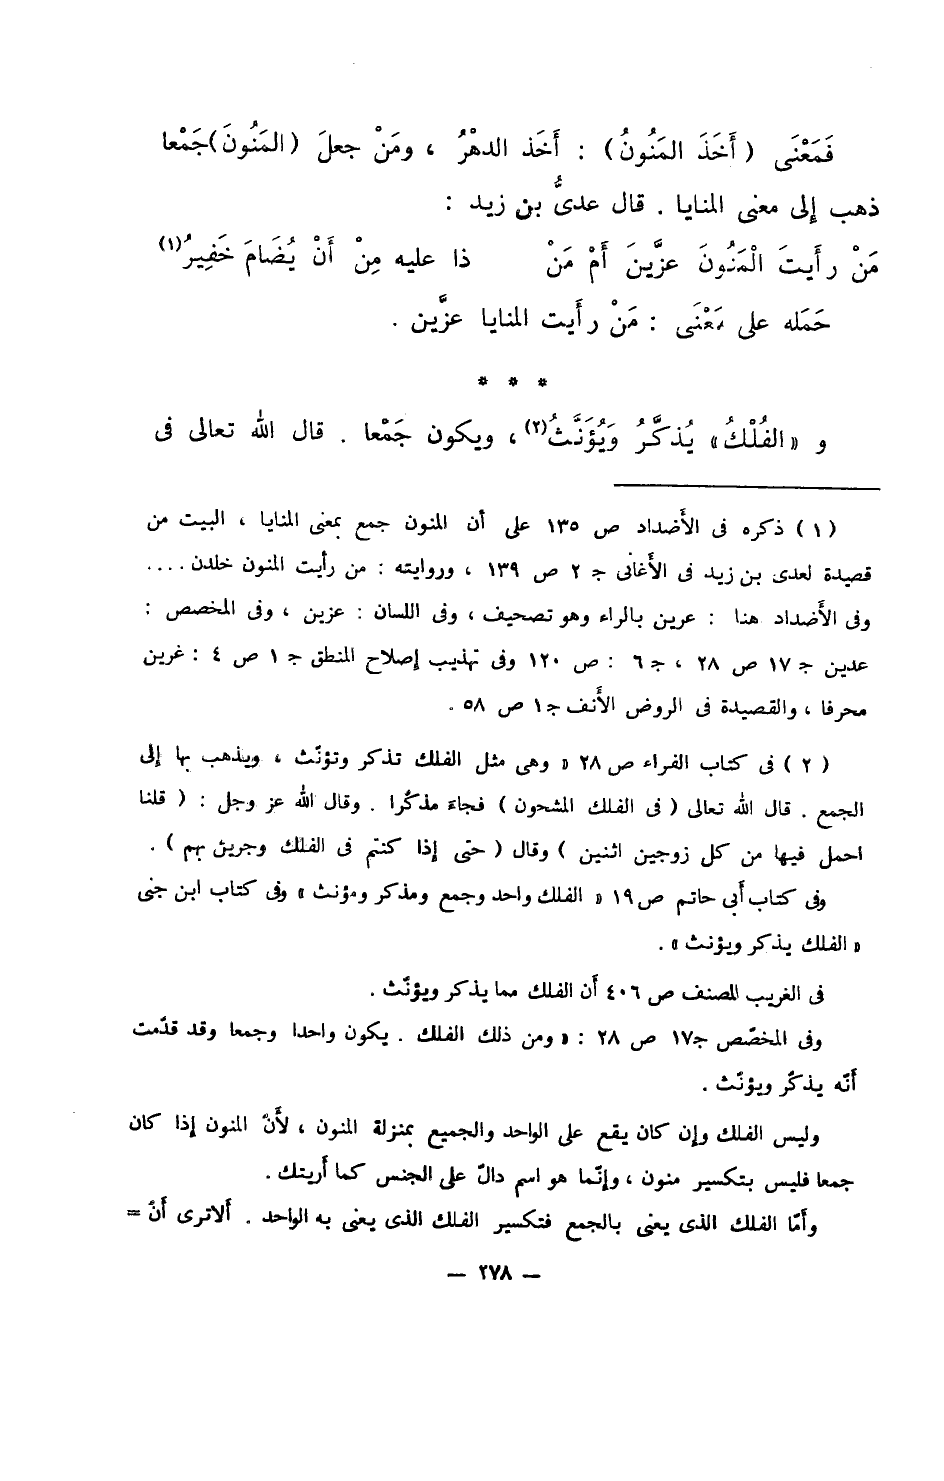 فَمَعْنَى ( أَخَذَ المَنُونُ ) : أَخَذ الدهْرُ ، ومَنْ جعلَ ( المَنُونَ )جَمْعا
ذهب إلى معنى المنايا . قال عدىُّ بن زيد :
مَنْ رأَيتَ الْمَنُونَ عزَّينَ أَمْ مَنْ ذا عليه مِنْ أَنْ يُضَامَ خَفِيرُ(١)
حَمَله على مَعْنَى : مَنْ رأَيت المنايا عزَّين .
* * *
و « الفُلْكُ » يُذكَّرُ وَيُؤَنَّثُ(٢) ، ويكون جَمْعا . قال الله تعالى فى
( ١ ) ذكره فى الأَضداد ص ١٣٥ على أن المنون جمع بمعنى المنايا ، البيت من
قصيدة لعدى بن زيد فى الأَغانى جـ ٢ ص ١٣٩ ، وروايته : من رأيت المنون خلدن ....
وفى الأَضداد هنا : عرين بالراء وهو تصحيف ، وفى اللسان : عزين ، وفى المخصص :
عدين جـ ١٧ ص ٢٨ ، جـ ٦ : ص ١٢٠ وفى تهذيب إصلاح المنطق جـ ١ ص ٤ : غرين
محرفا ، والقصيدة فى الروض الأَنف جـ١ ص ٥٨ .
( ٢ ) فى كتاب الفراء ص ٢٨ « وهى مثل الفلك تذكر وتؤنّث ، ويذهب بها إلى
الجمع . قال الله تعالى ( فى الفلك المشحون ) فجاءَ مذكّرا . وقال الله عز وجل : ( قلنا
احمل فيها من كل زوجين اثنين ) وقال ( حتى إذا كنتم فى الفلك وجرين بهم ) .
وفى كتاب أبى حاتم ص ١٩ « الفلك واحد وجمع ومذكر ومؤنث » وفى كتاب ابن جنى
« الفلك يذكر ويؤنث » .
فى الغريب المصنف ص ٤٠٦ أَن الفلك مما يذكر ويؤنّث .
وفى المخصّص جـ١٧ ص ٢٨ : « ومن ذلك الفلك . يكون واحدا وجمعا وقد قدّمت
أَنّه يذكّر ويؤنّث .
وليس الفلك وإن كان يقع على الواحد والجميع بمنزلة المنون ، لأَنّ المنون إذا كان
جمعا فليس بتكسير منون ، وإنّما هو اسم دالّ على الجنس كما أَريتك .
وأَمّا الفلك الذى يعنى بالجمع فتكسير الفلك الذى يعنى به الواحد . أَلاترى أَنّ =
— ٢٧٨ —